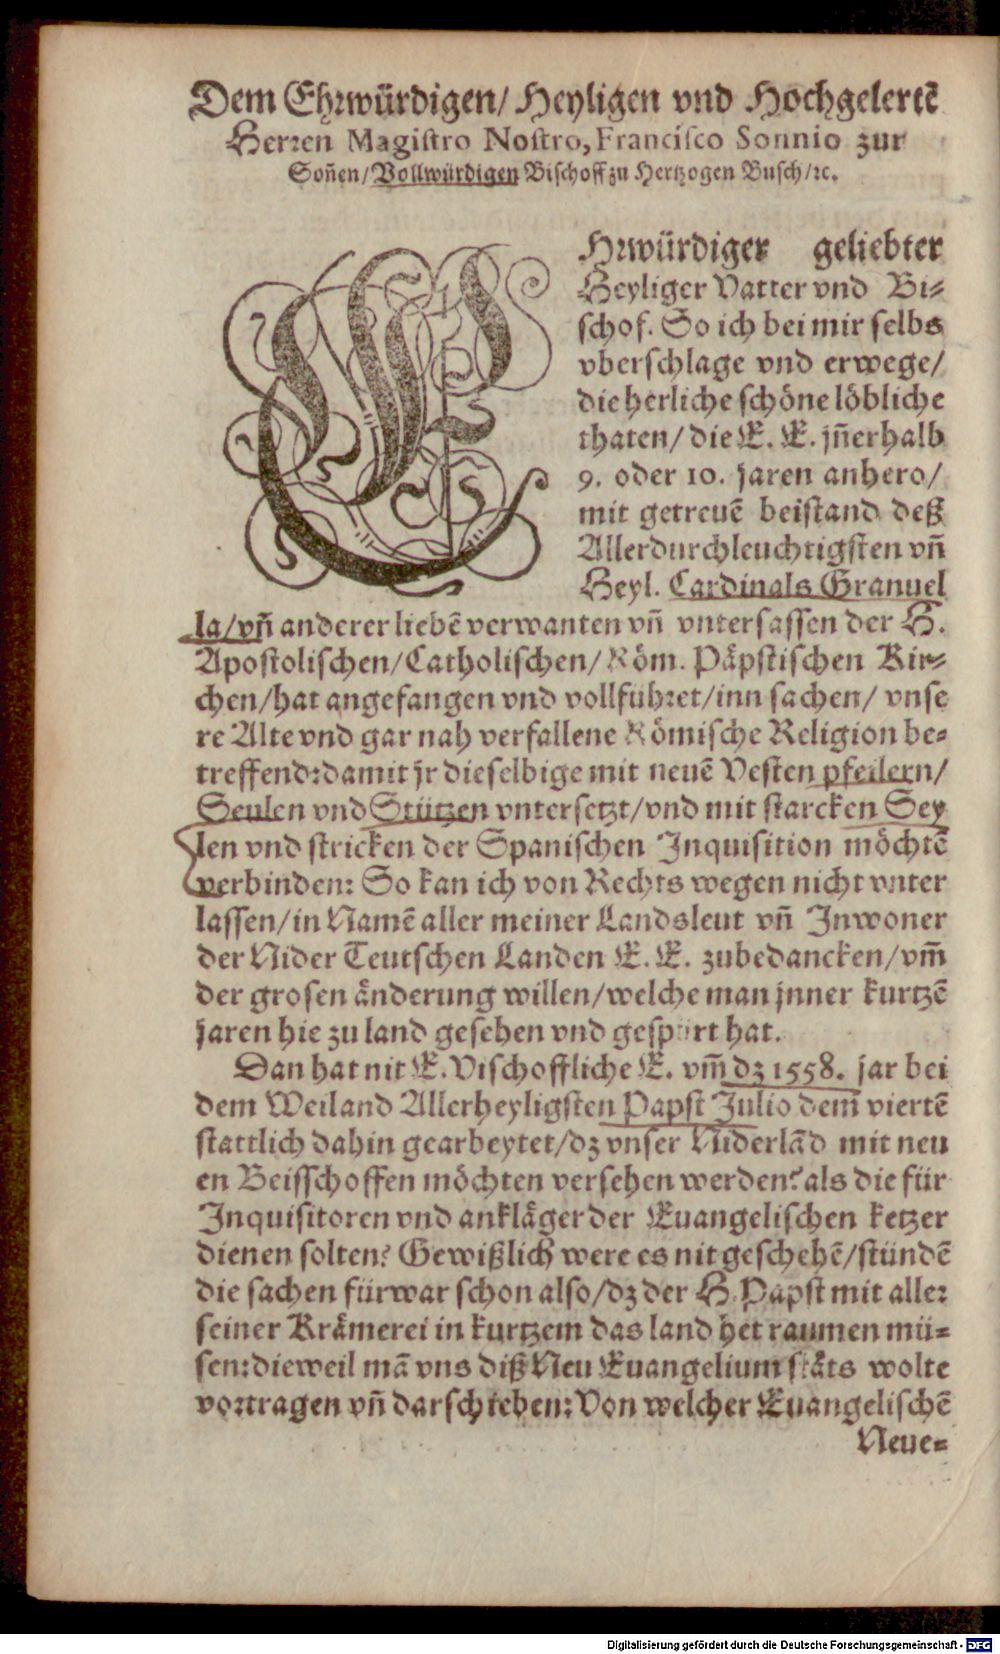 Dem Ehrwürdigen/ Heyligen vnd Hochgelertē
Herren Magiſtro Noſtro, Franciſco Sonnio zur
Soñen/ Vollwürdigen Biſchoff zu Hertzogen Buſch/ ꝛc.
EHrwürdiger geliebter
Heyliger Vatter vnd Bi-
ſchof. So ich bei mir ſelbs
vberſchlage vnd erwege/
die herliche ſchöne löbliche
thaten/ die E. E. jñerhalb
9. oder 10. jaren anhero/
mit getreuē beiſtand deß
Allerdurchleuchtigſten vñ
Heyl. Cardinals Granuel
la/ vñ anderer liebē verwanten vñ vnterſaſſen der H.
Apoſtoliſchen/ Catholiſchen/ Röm. Päpſtiſchen Kir-
chen/ hat angefangen vnd vollführet/ inn ſachen/ vnſe
re Alte vnd gar nah verfallene Römiſche Religion be-
treffend: damit jr dieſelbige mit neuē Veſten pfeilern/
Seulen vnd Stützen vnterſetzt/ vnd mit ſtarcken Sey
len vnd ſtricken der Spaniſchen Inquiſition möchtē
verbinden: So kan ich von Rechts wegen nicht vnter
laſſen/ in Namē aller meiner Landsleut vñ Inwoner
der Nider Teutſchen Landen E. E. zubedancken/ vm̃
der groſen änderung willen/ welche man jnner kurtzē
jaren hie zu land geſehen vnd geſpürt hat.
Dan hat nit E. Biſchoffliche E. vm̃ dz 1558. jar bei
dem Weiland Allerheyligſten Papſt Julio dem̃ viertē
ſtattlich dahin gearbeytet/ dz vnſer Niderlād mit neu
en Beiſſchoffen möchten verſehen werden? als die für
Inquiſitoren vnd ankläger der Euangeliſchen ketzer
dienen ſolten? Gewißlich were es nit geſchehē/ ſtündē
die ſachen fürwar ſchon alſo/ dz der H. Papſt mit aller
ſeiner Krämerei in kurtzem das land het raumen mü-
ſen: dieweil mā vns diß Neu Euangelium ſtäts wolte
vortragen vñ darſchieben: Von welcher Euangeliſchē
Neue-
Digitalisierung gefördert durch die Deutsche Forschungsgemeinschaft - DFG